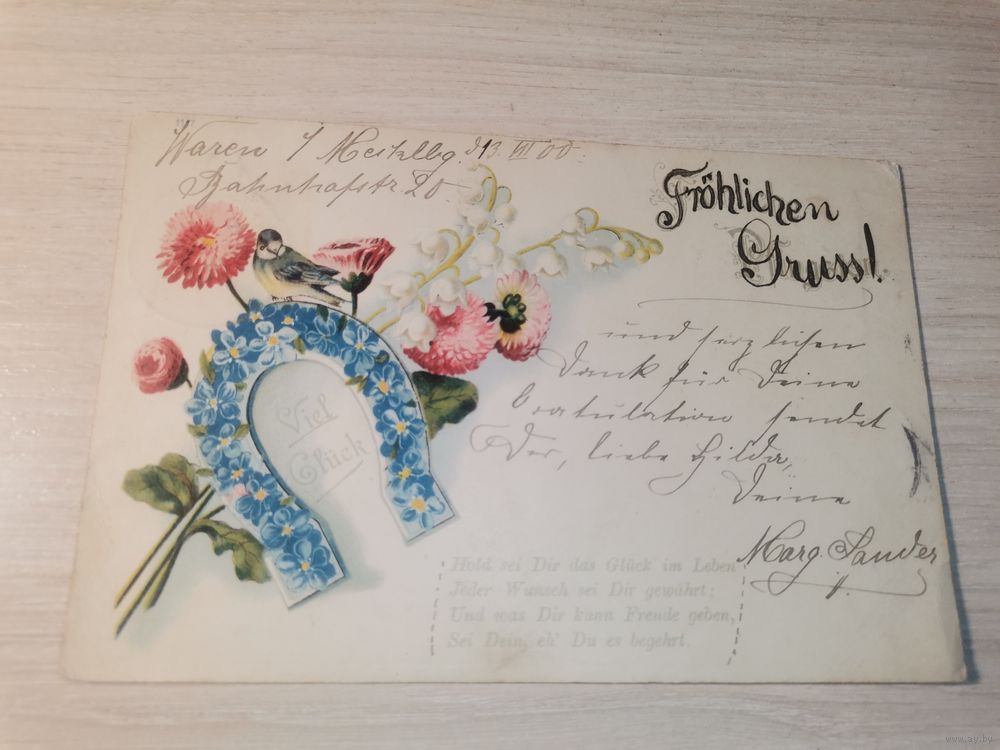 Waren i/ Mecklbg. d 13. VII 00.
Bahnhofstr. 20.
Fröhlichen
Gruss!
und herzlichen
Dank für Deine
Gratulation sendet
Dir, liebe Hilda,
Deine
Marg. Sander
Viel
Glück
Hold sei Dir das Glück im Leben
Jeder Wunsch sei Dir gewährt;
Und was Dir kann Freude geben,
Sei Dein, eh' Du es begehrt.
www.ay.by